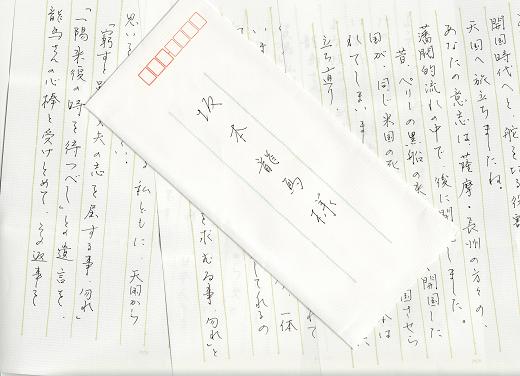 開国時代へと舵を切る役割
天国へ旅立ちましたね。
あなたの意志は、薩摩・長州の方々の、
藩閥的流れの中で、後に開
しました。
昔、ペリーの黒船の来
開国した
国が、同じ米国の死
国させら
れてしまいま
かは
立ち通り、
れて
一体
してれるの
を求むる事、勿れ」と
私ともに、天国から
思いを
「窮すと
夫の志を屈する事、勿れ」
「一陽来復の時を待つべし」との遺言を、
龍馬さんの心棒と受けとめて、この返事を
坂本龍馬様